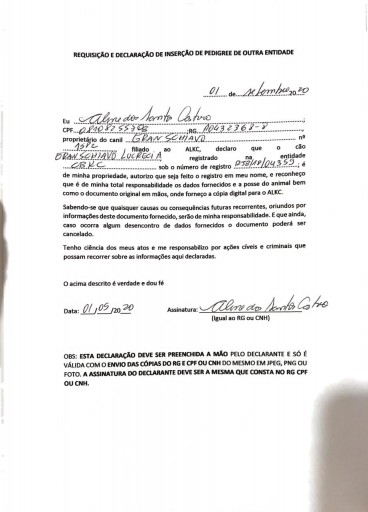 REQUISIÇÃO E DECLARAÇÃO DE INSERÇÃO DE PEDIGREE DE OUTRA ENTIDADE
01 de setembro 20 20
Eu Aline dos Santos Castro
CPF RG
proprietário do canil GRAN SCHIAVO nº
filiado ao ALKC, declaro que o cão
GRAN SCHIAVO LUCRECIA registrado na entidade
CBKC sob o número de registro é
de minha propriedade, autorizo que seja feito o registro em meu nome, e reconheço
que é de minha total responsabilidade os dados fornecidos e a posse do animal bem
como o documento original em mãos, onde forneço a cópia digital para o ALKC.
Sabendo-se que quaisquer causas ou consequências futuras recorrentes, oriundos por
informações deste documento fornecido, serão de minha responsabilidade. E que ainda,
caso ocorra algum desencontro de dados fornecidos o documento poderá ser
cancelado.
Tenho ciência dos meus atos e me responsabilizo por ações cíveis e criminais que
possam recorrer sobre as informações aqui declaradas.
O acima descrito é verdade e dou fé
Data: 01/09/20 20 Assinatura: Aline dos Santos Castro
(Igual ao RG ou CNH)
OBS: ESTA DECLARAÇÃO DEVE SER PREENCHIDA A MÃO PELO DECLARANTE E SÓ É
VÁLIDA COM O ENVIO DAS CÓPIAS DO RG E CPF OU CNH DO MESMO EM JPEG, PNG OU
FOTO. A ASSINATURA DO DECLARANTE DEVE SER A MESMA QUE CONSTA NO RG CPF
OU CNH.